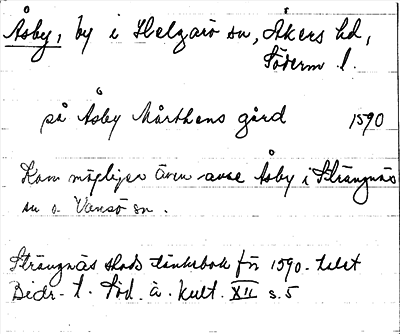 Åsby, by i Helgarö sn, Åkers hd,
Söderm l.
på Åsby Mårthens gård 1590
Kan möjligen även avse Åsby i Strängnäs
sn o. Vansö sn.
Strängnäs stads tänkebok för 1590- talet
Bidr. t. Söd. ä. kult. XII s. 5